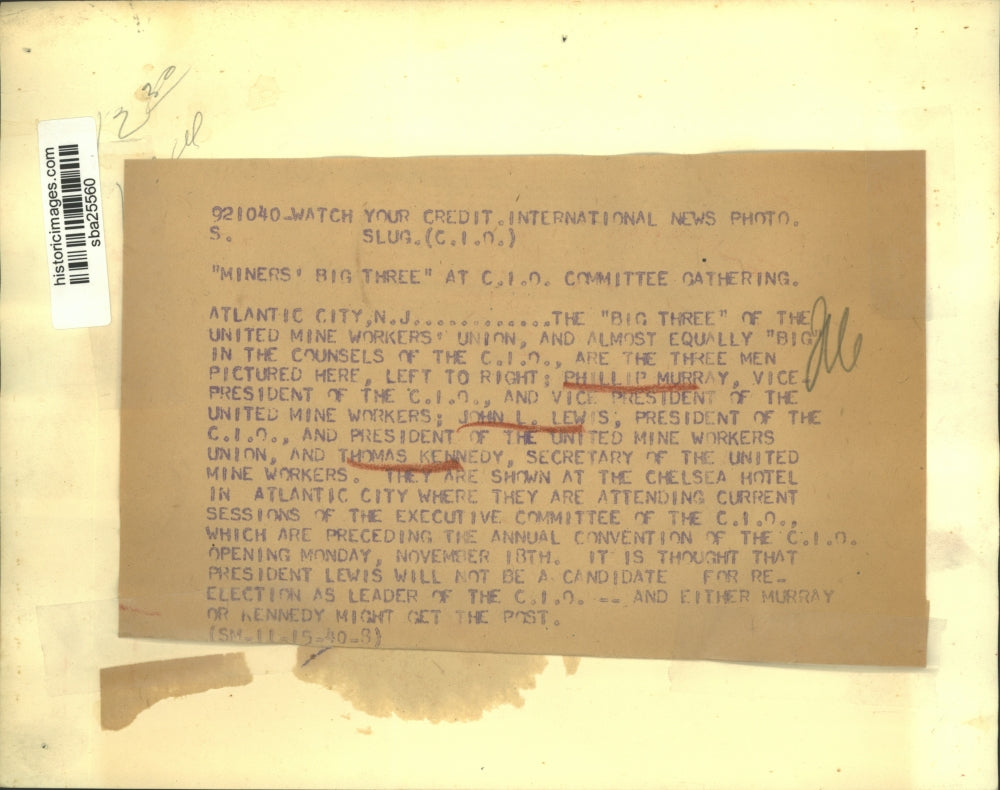 historicimages.com
sba25560
921040-WATCH YOUR CREDIT.INTERNATIONAL NEWS PHOTO.
S. SLUG.(C.I.O.)
"MINERS' BIG THREE" AT C.I.O. COMMITTEE GATHERING.
ATLANTIC CITY,N.J.............THE "BIG THREE" OF THE
UNITED MINE WORKERS' UNION, AND ALMOST EQUALLY "BIG"
IN THE COUNSELS OF THE C.I.O., ARE THE THREE MEN
PICTURED HERE, LEFT TO RIGHT; PHILLIP MURRAY, VICE
PRESIDENT OF THE C.I.O., AND VICE PRESIDENT OF THE
UNITED MINE WORKERS; JOHN L. LEWIS, PRESIDENT OF THE
C.I.O., AND PRESIDENT OF THE UNITED MINE WORKERS
UNION, AND THOMAS KENNEDY, SECRETARY OF THE UNITED
MINE WORKERS. THEY ARE SHOWN AT THE CHELSEA HOTEL
IN ATLANTIC CITY WHERE THEY ARE ATTENDING CURRENT
SESSIONS OF THE EXECUTIVE COMMITTEE OF THE C.I.O.,
WHICH ARE PRECEDING THE ANNUAL CONVENTION OF THE C.I.O.
OPENING MONDAY, NOVEMBER 18TH. IT IS THOUGHT THAT
PRESIDENT LEWIS WILL NOT BE A CANDIDATE FOR RE-
ELECTION AS LEADER OF THE C.I.O. -- AND EITHER MURRAY
OR KENNEDY MIGHT GET THE POST.
(SM-11-15-40-8)